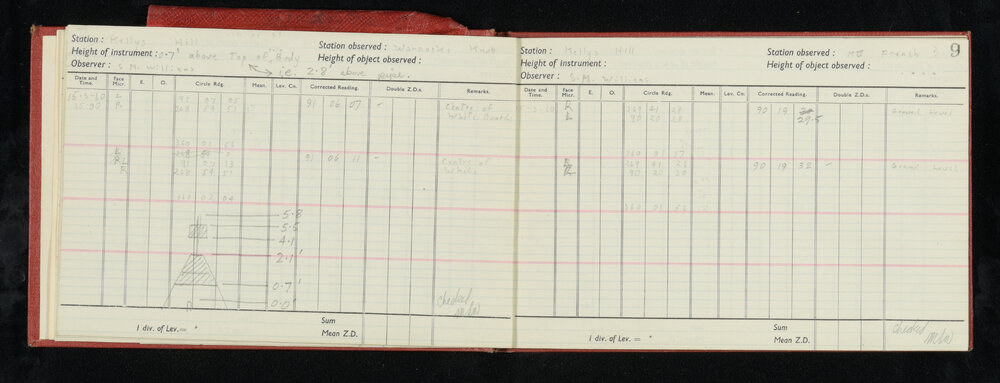 Station : Kellys Hill
Station observed : Wannaska Knob
Height of instrument : 0.7' above Top of Body
Height of object observed :
Observer : S.M. Willians
i.e. 2.8' above pipe.
Date and Time. Face Micr. E. O. Circle Rdg. Mean. Lev. Cn. Corrected Reading. Double Z.D.s. Remarks.
L 91 07 05 91 06 07 - Centre of
R 268 54 51 White Board
360 01 56
L
R L 91 07 13 91 06 11 - Centre of
R 268 54 51
360 02 04
5.8
5.5
4.1
2.1'
0.7'
0.0'
checked
1 div. of Lev.= "
Sum
Mean Z.D.
9
Station : Kellys Hill
Station observed : Mt French
Height of instrument :
Height of object observed :
Observer : S.M. Willians
Date and Time. Face Micr. E. O. Circle Rdg. Mean. Lev. Cn. Corrected Reading. Double Z.D.s. Remarks.
R 269 41 29 90 19 Ground Level
L 90 20 28 29.5
360 01 57
R 269 41 26 90 19 32 Ground Level
L 90 20 30
360 01 56
checked
1 div. of Lev.= "
Sum
Mean Z.D.